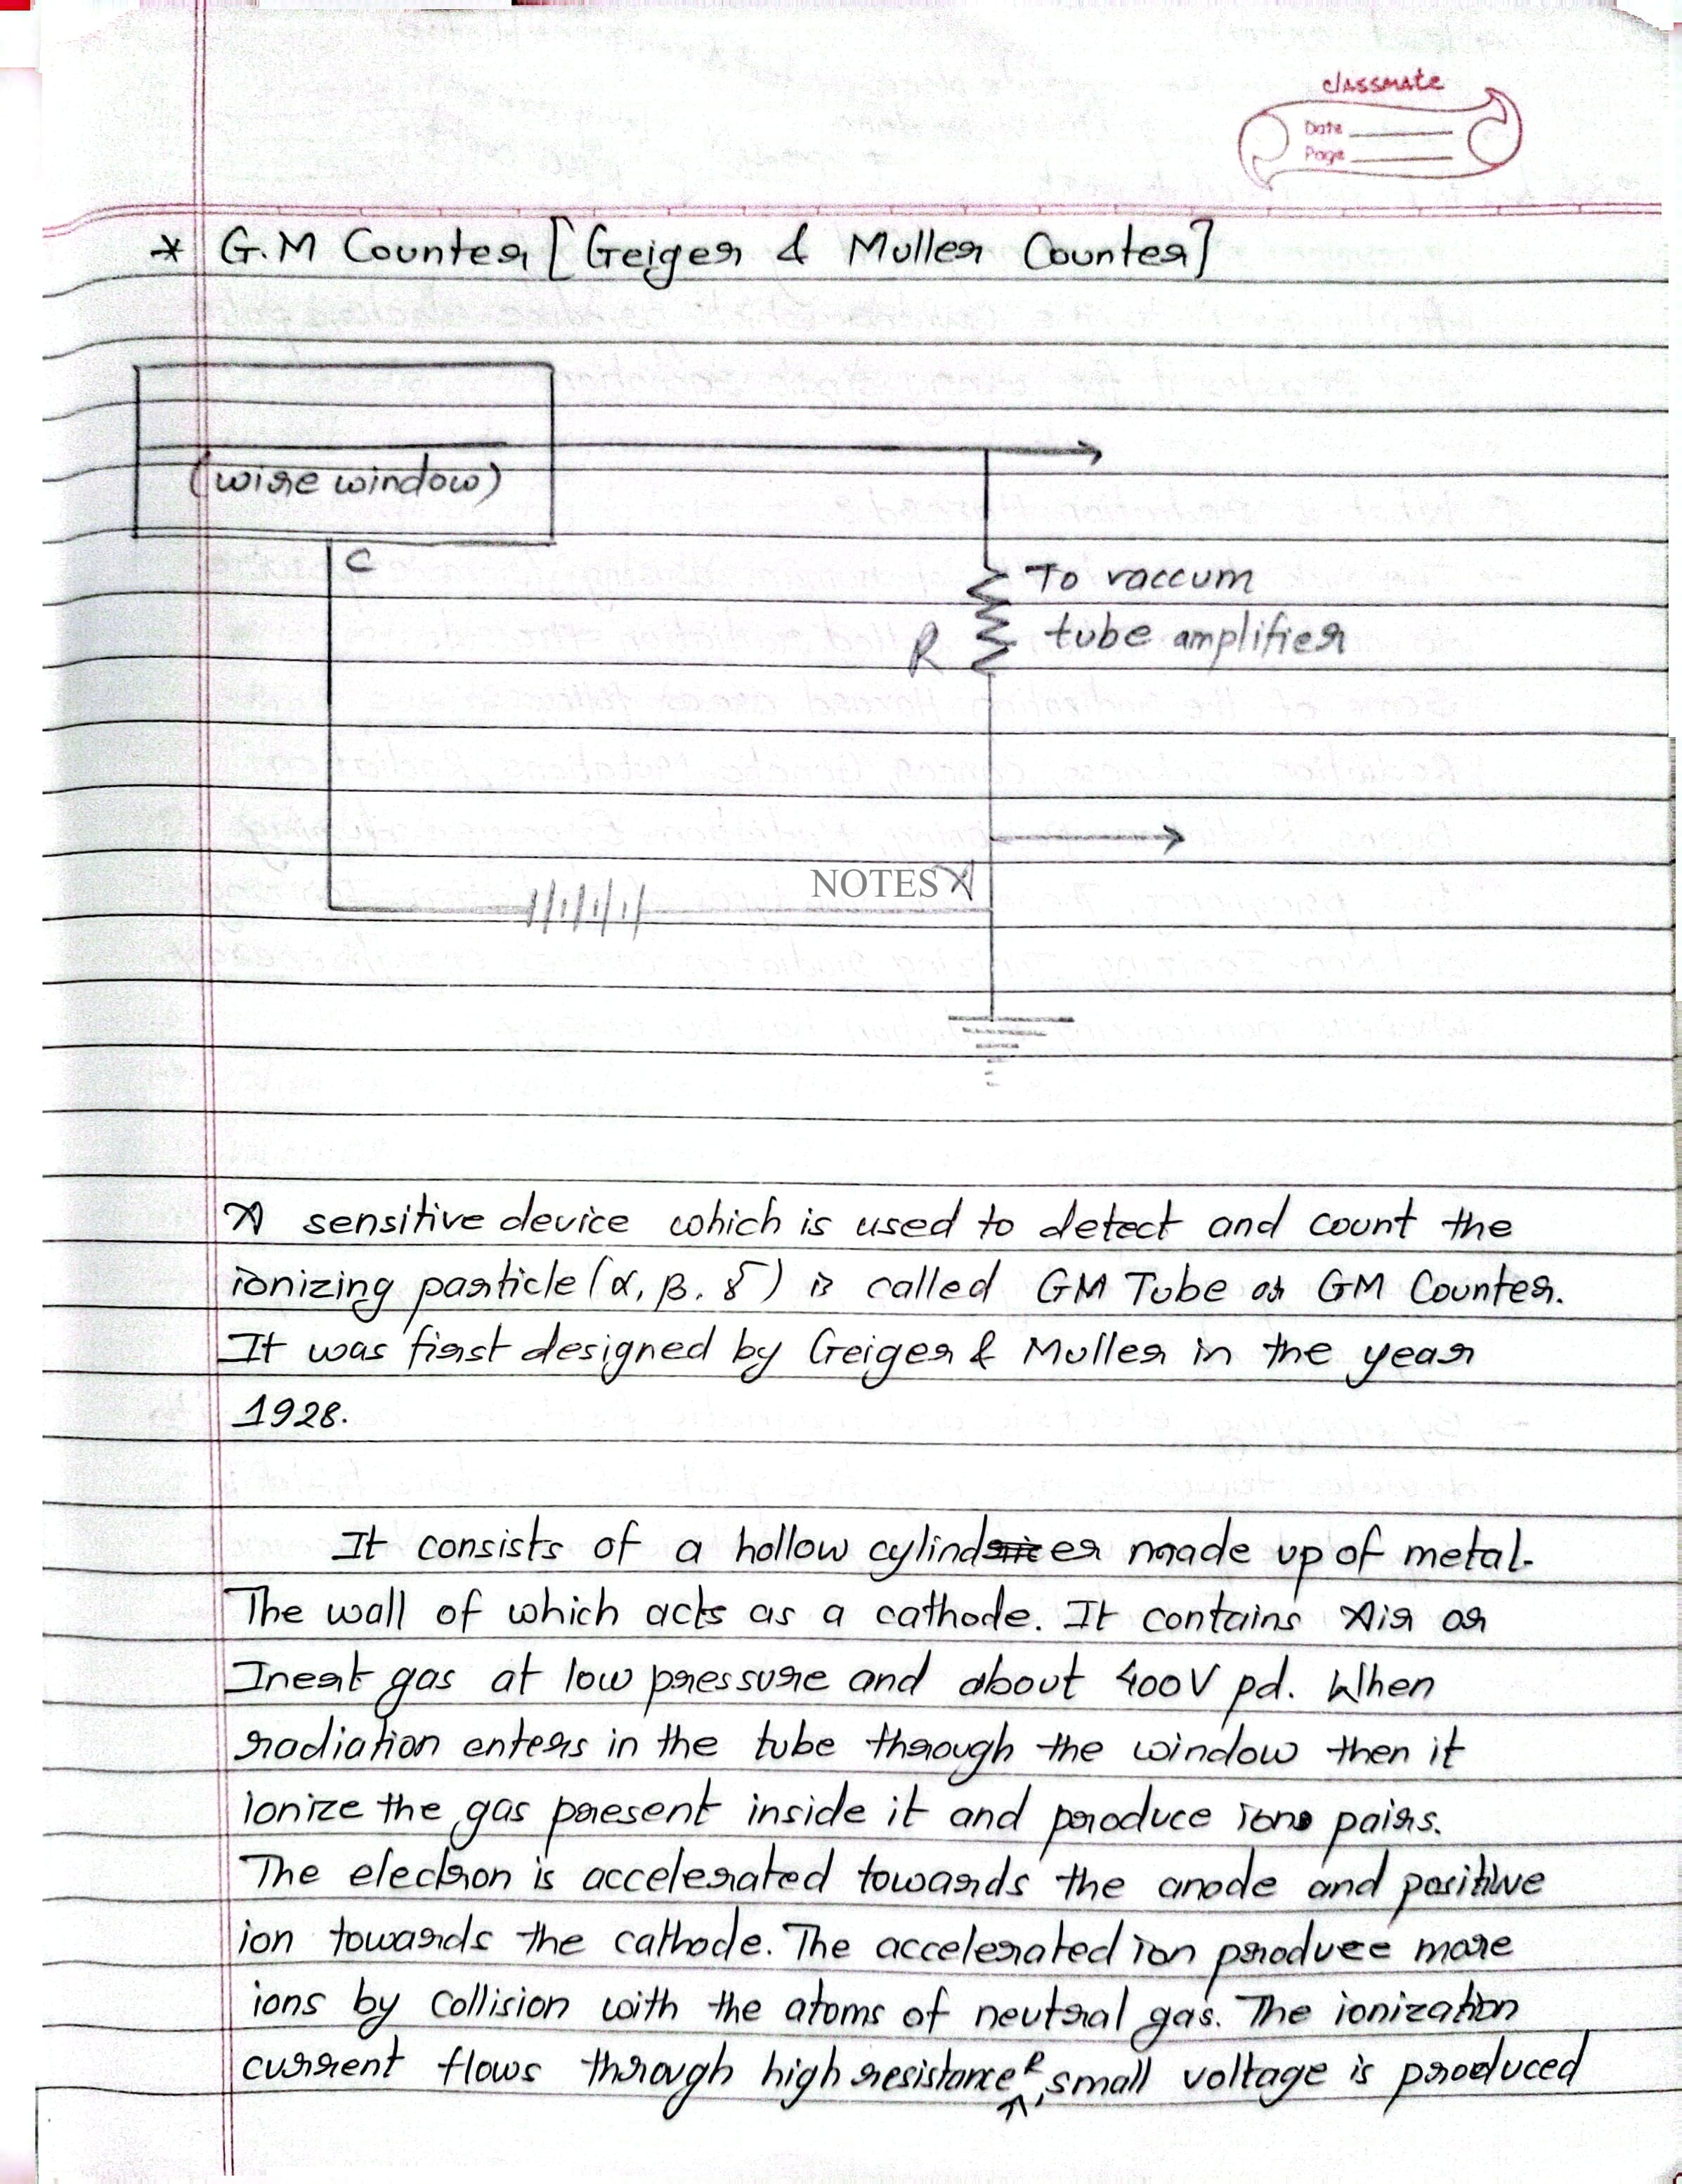 classmate
Date
Page
* G.M Counter [Geiger & Muller Counter]
(wire window)
C
To vaccum
R tube amplifier
NOTES A
A sensitive device which is used to detect and count the
ionizing particle (α, β, δ) is called GM Tube or GM Counter.
It was first designed by Geiger & Muller in the year
1928.
It consists of a hollow cylinder made up of metal.
The wall of which acts as a cathode. It contains Air or
Inert gas at low pressure and about 400V pd. When
radiation enters in the tube through the window then it
ionize the gas present inside it and produce ion pairs.
The electron is accelerated towards the anode and positive
ion towards the cathode. The accelerated ion produce more
ions by collision with the atoms of neutral gas. The ionization
current flows through high resistance R, small voltage is produced